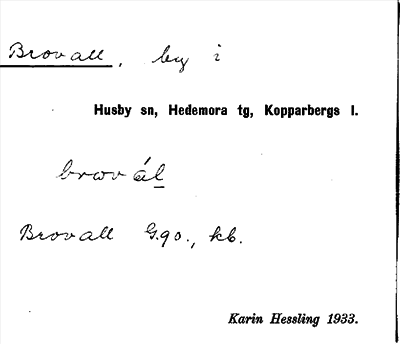 Brovall, by i
Husby sn, Hedemora tg, Kopparbergs l.
Brovall G.90., kb.
Karin Hessling 1933.